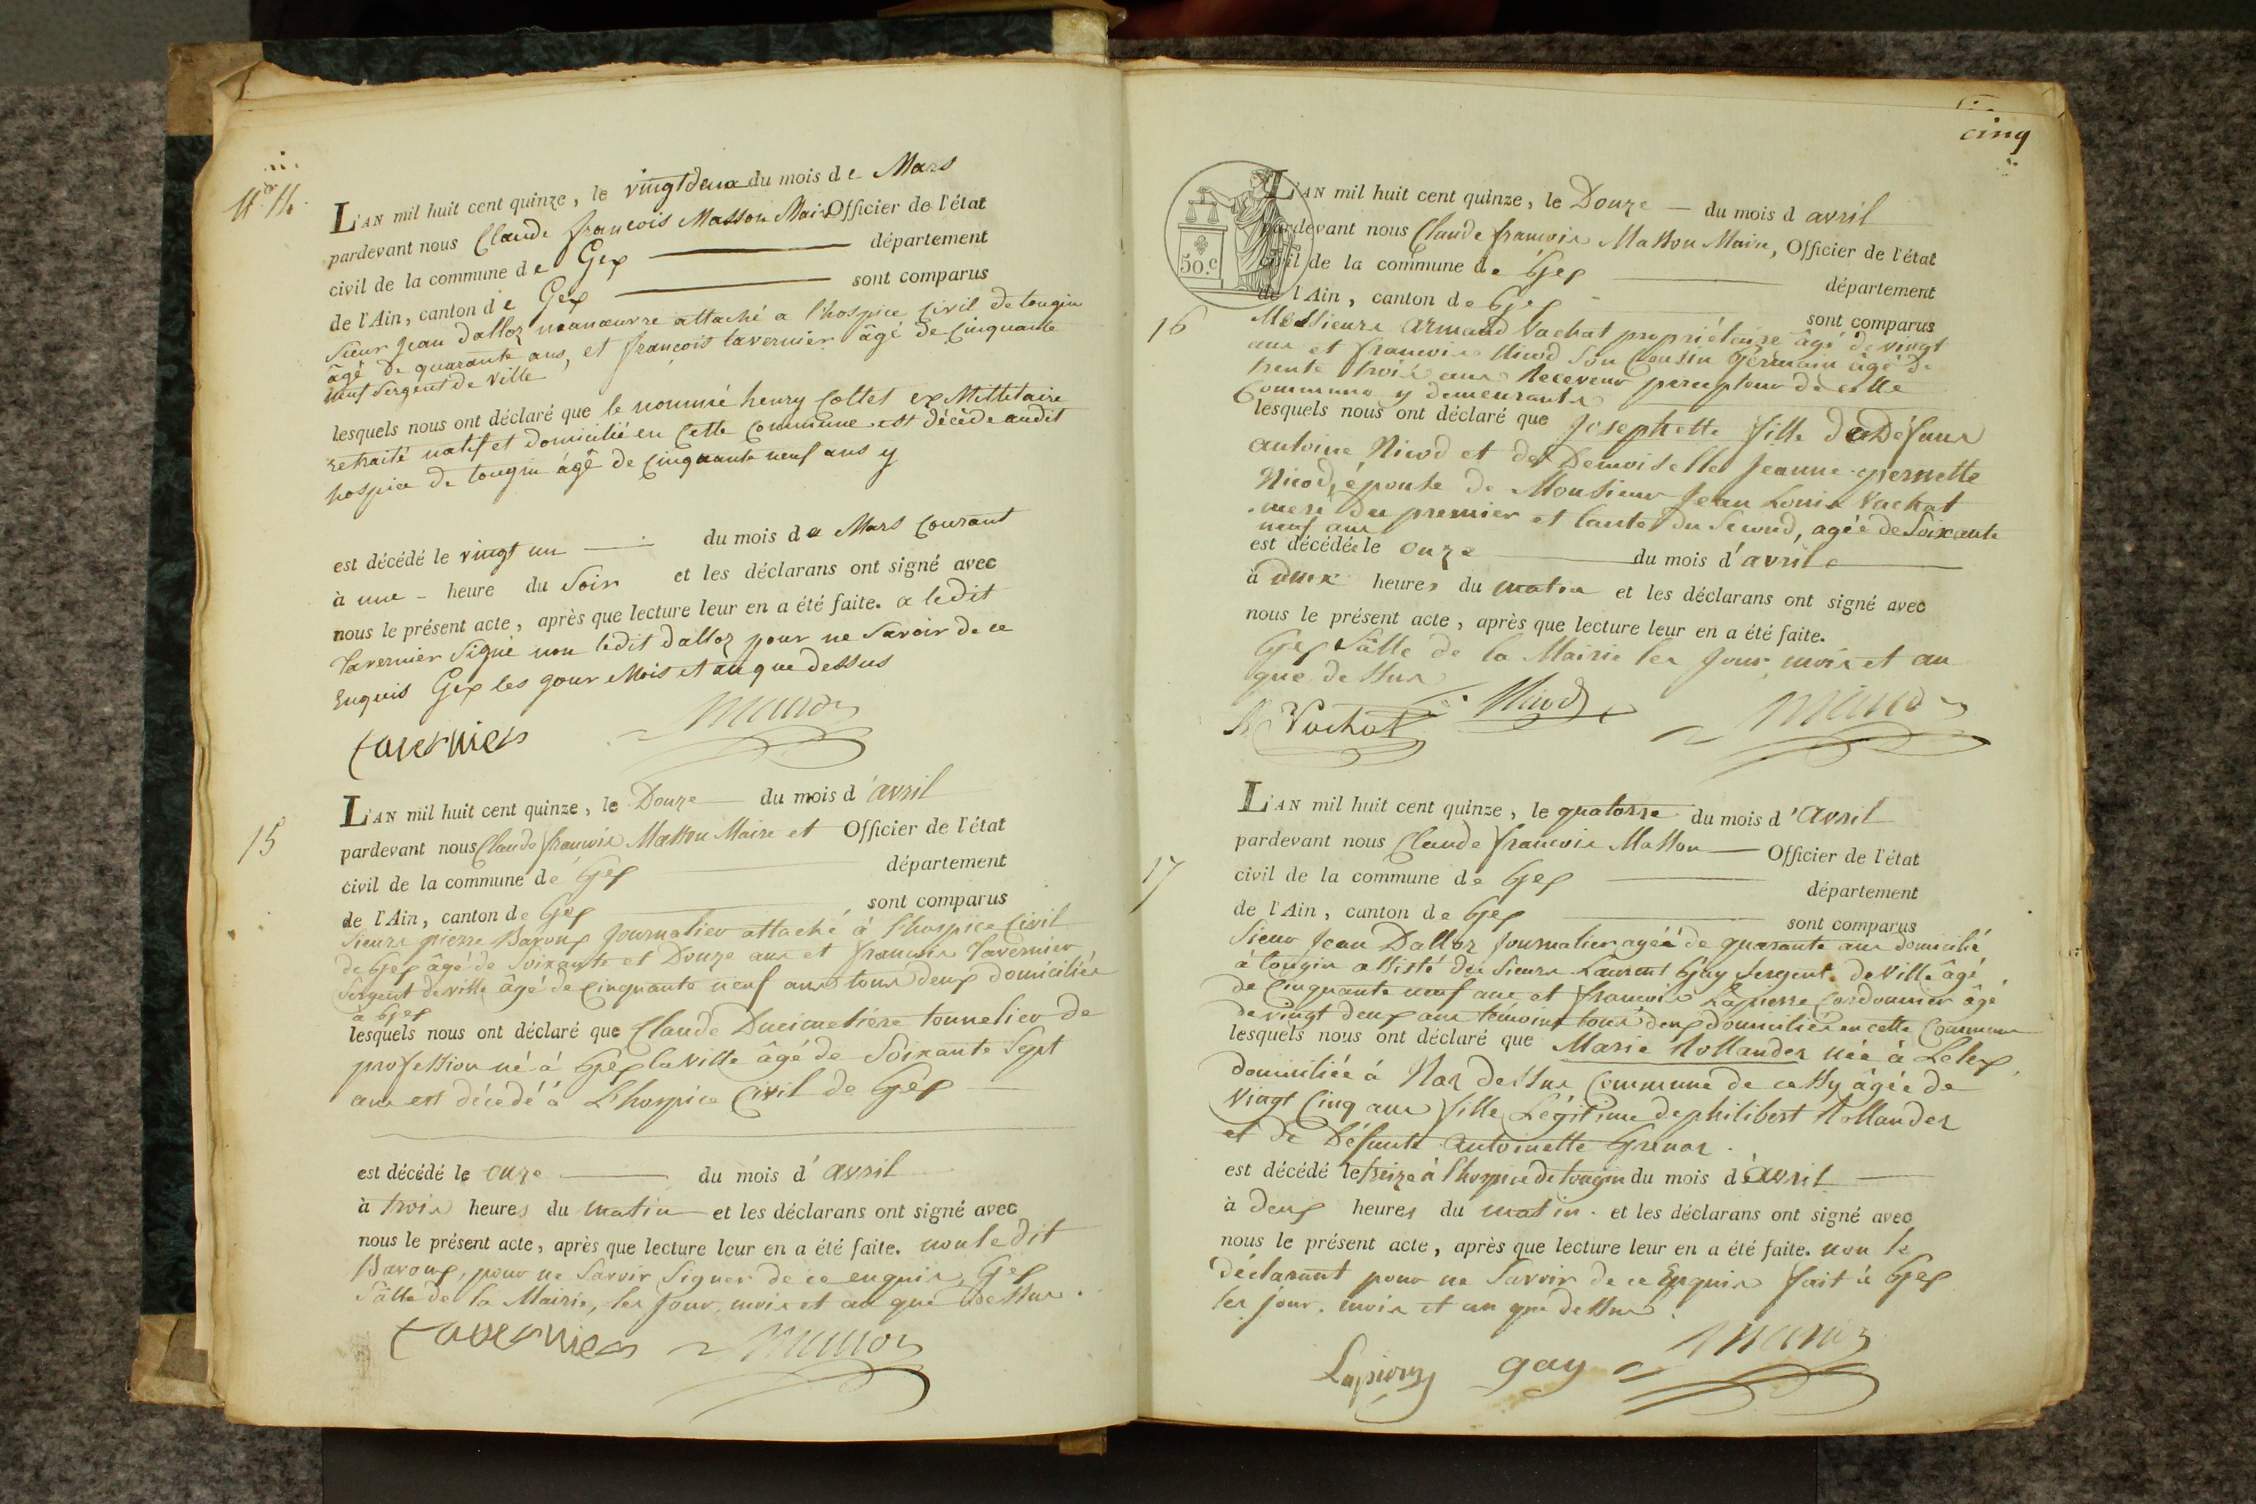 No. 14.
L'AN mil huit cent quinze, le vingt deux du mois de Mars
pardevant nous Claude françois Masson Maire Officier de l'état
civil de la commune de Gex département
de l'Ain, canton de Gex sont comparus
Sieur Jean dalloz manœuvre attaché a l'hospice Civil de tougin
âgé de quarante ans, et françois tavernier âgé de Cinquante
neuf Sergent de ville
lesquels nous ont déclaré que le nommé henry Coltet ex Militaire
retraité natif et domicilié en Cette Commune est décédé audit
hospice de tougin âgé de Cinquante neuf ans y
est décédé le vingt un du mois de Mars Courant
à une heure du Soir et les déclarans ont signé avec
nous le présent acte, après que lecture leur en a été faite. a ledit
Tavernier Signé non ledit dalloz pour ne Savoir de ce
Enquis Gex les jour Mois et an que dessus
tavernier Masson
15
L'AN mil huit cent quinze, le Douze du mois d'avril
pardevant nous Claude françois Masson Maire et Officier de l'état
civil de la commune de Gex département
de l'Ain, canton de Gex sont comparus
Sieurs pierre Baroux Journalier attaché à l'hospice Civil
de Gex âgé de Soixante et Douze ans et francois Tavernier
Sergent de ville âgé de Cinquante neuf ans tous deux domiciliés
à Gex
lesquels nous ont déclaré que Claude Ducimetière tonnelier de
profession né à Gex la ville âgé de Soixante Sept
ans est décédé à L'hospice Civil de Gex
est décédé le onze du mois d'avril
à trois heures du matin et les déclarans ont signé avec
nous le présent acte, après que lecture leur en a été faite. non le dit
Baroux, pour ne Savoir Signer de ce enquis, Gex
Sâlle de la Mairie, les Jour, mois et an que dessus.
tavernier Masson
cinq
50.c
16
L'AN mil huit cent quinze, le Douze du mois d avril
pardevant nous Claude francois Masson Maire, Officier de l'état
civil de la commune de Gex département
de l'Ain, canton de Gex sont comparus
Messieurs armand Vachat propriétaire âgé de vingt
ans et francois Nicod Son Cousin Germain âgé de
trente trois ans Receveur percepteur de cette
Commune y demeurants
lesquels nous ont déclaré que Josephette fille de Défunt
antoine Nicod et de Demoiselle Jeanne pernette
Nicod, épouse de Monsieur Jean Louis Vachat
mere du premier et tante du Second, agée de Soixante
neuf ans
est décédée le onze du mois d'avril
à deux heures du matin et les déclarans ont signé avec
nous le présent acte, après que lecture leur en a été faite.
Gex Sâlle de la Mairie les Jour, mois et an
que dessus
Vachat Nicod Masson
17
L'AN mil huit cent quinze, le quatorze du mois d'avril
pardevant nous Claude francois Masson Officier de l'état
civil de la commune de Gex département
de l'Ain, canton de Gex sont comparus
Sieur Jean Dalloz Journalier agéé de quarante ans domicilié
à tougin assisté des Sieurs Laurent Gay Sergent de ville âgé
de Cinquante neuf ans et francois Lapierre Cordonnier âgé
de vingt deux ans témoins tous deux domiciliés en cette Commune
lesquels nous ont déclaré que Marie Rollandez née à Lelex,
domiciliée à Naz dessus Commune de cessy âgée de
Vingt Cinq ans fille Légitime de philibert Rollandez
et de Défunte Antoinette Grenar.
est décédé le treize à l'hospice de tougin du mois d'avril
à deux heures du matin. et les déclarans ont signé avec
nous le présent acte, après que lecture leur en a été faite. non le
déclarant pour ne Savoir de ce Enquis fait à Gex
les jour, mois et an que dessus.
Lapierre gay Masson